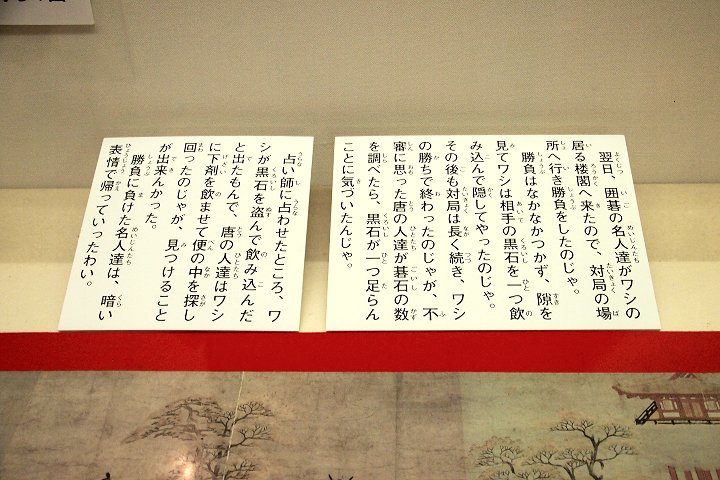 翌日、囲碁の名人達がワシの
居る楼閣へ来たので、対局の場
所へ行き勝負をしたのじゃ。
勝負はなかなかつかず、隙を
見てワシは相手の黒石を一つ飲
み込んで隠してやったのじゃ。
その後も対局は長く続き、ワシ
の勝ちで終わったのじゃが、不
審に思った唐の人達が碁石の数
を調べたら、黒石が一つ足らん
ことに気づいたんじゃ。
占い師に占わせたところ、ワ
シが黒石を盗んで飲み込んだ
と出たもんで、唐の人達はワシ
に下剤を飲ませて便の中を探し
回ったのじゃが、見つけること
が出来んかった。
勝負に負けた名人達は、暗い
表情で帰っていったわい。